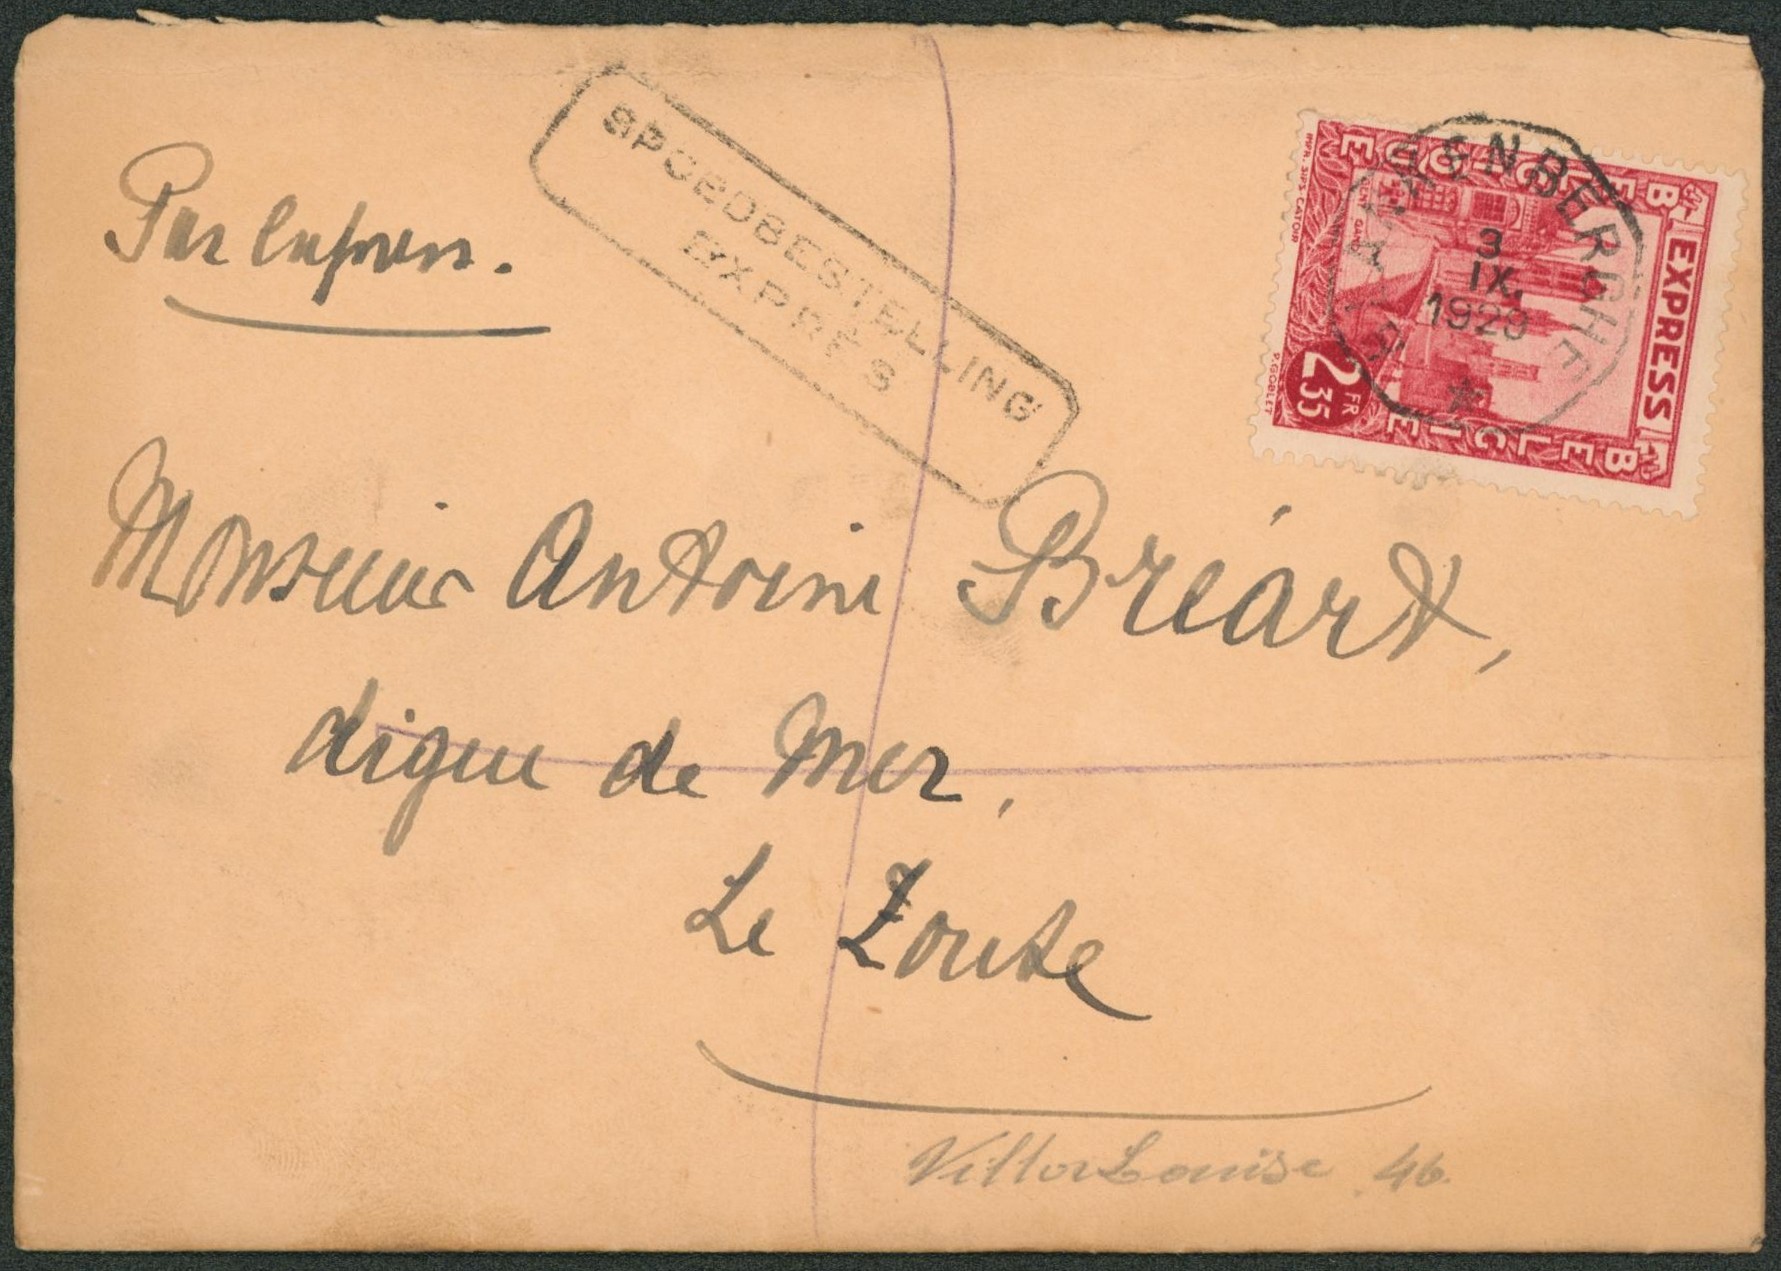 Par Express.
SPOEDBESTELLING
EXPRÈS
BELGIQUE
EXPRESS
BELGIË
2 FR 35
IMPR. SIPS. CATOIR
P. GOBLET
BLANKENBERGHE
3
IX.
1929
Monsieur Antoine Bréart,
digue de Mer,
Le Zoute
Villa Louise 46.